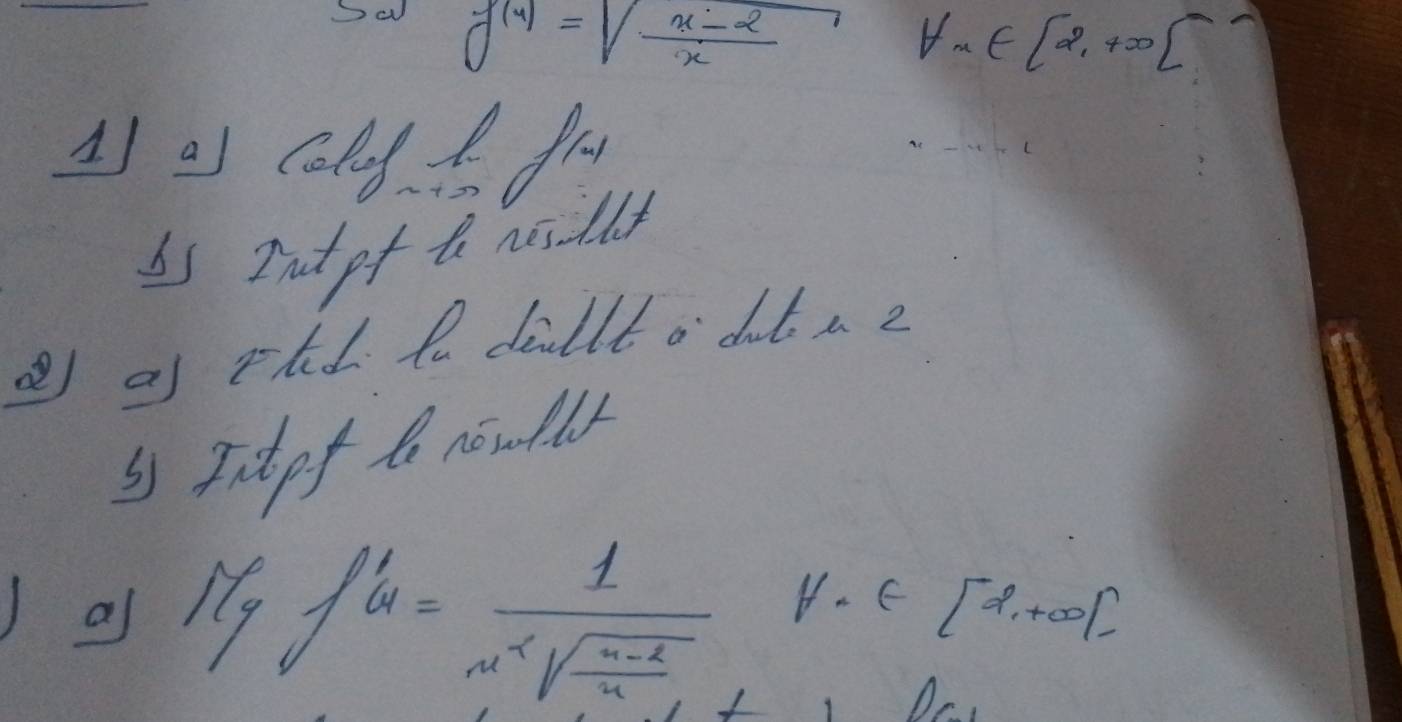 Soit f(x) = √((x-2)/x) ∀x ∈ [2, +∞[
1) a) Calcul lim x→+∞ f(x)
b) Intpt le résultat
2) a) Etudi la dérblt à droite en 2
b) Intpt le résultat
) a) Mq f'(x) = 1/(x²√((x-2)/x)) ∀x ∈ [2, +∞[
f(x)